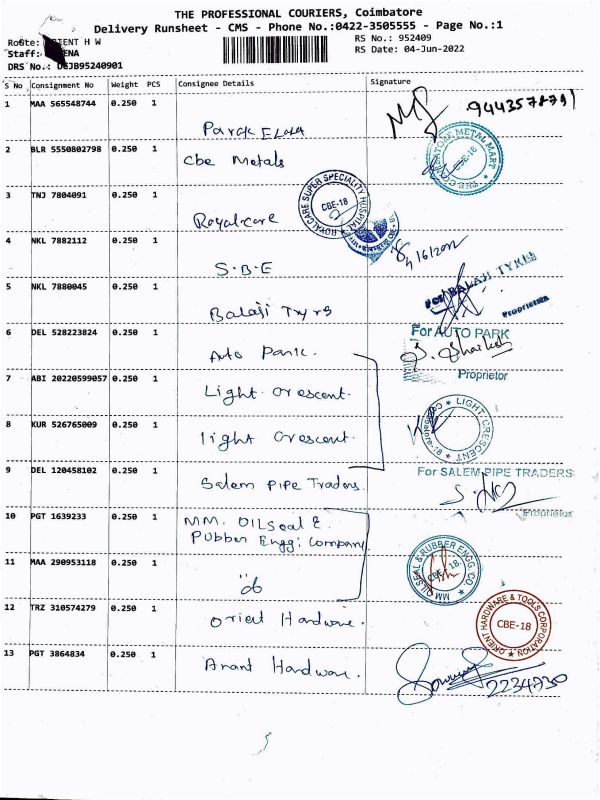 THE PROFESSIONAL COURIERS, Coimbatore
Delivery Runsheet - CMS - Phone No.:0422-3505555 - Page No.:1
Route: ORIENT H W
RS No.: 952409
Staff:
RS Date: 04-Jun-2022
DRS No.: DCJB95240901
S No Consignment No Weight PCS Consignee Details Signature
1 MAA 565548744 0.250 1 9443578791
2 BLR 5550802798 0.250 1 Cbe Metals THE COIMBATORE METAL MART CBE-18
3 TNJ 7804091 0.250 1 Royalcare ROYALCARE SUPER SPECIALITY HOSPITAL CBE-18
4 NKL 7882112 0.250 1 S.B.E 4/6/2022
5 NKL 7880045 0.250 1 Balaji Tryrs For BALAJI TYRES
Proprietor
6 DEL 528223824 0.250 1 Auto Park. For AUTO PARK
Proprietor
7 ABI 20220599057 0.250 1 Light crescent.
8 KUR 526765009 0.250 1 light crescent. LIGHT CRESCENT
9 DEL 120458102 0.250 1 Salem Pipe Traders. For SALEM PIPE TRADERS
Proprietor
10 PGT 1639233 0.250 1 MM. OILSeal &
Rubber Engg: Company
11 MAA 290953118 0.250 1 MM OILSEAL & RUBBER ENGG. CO. CBE-18.
12 TRZ 310574279 0.250 1 Orient Hardware. ORIENT HARDWARE & TOOLS CORPORATION CBE-18
13 PGT 3864834 0.250 1 Anant Hardware. 2234730